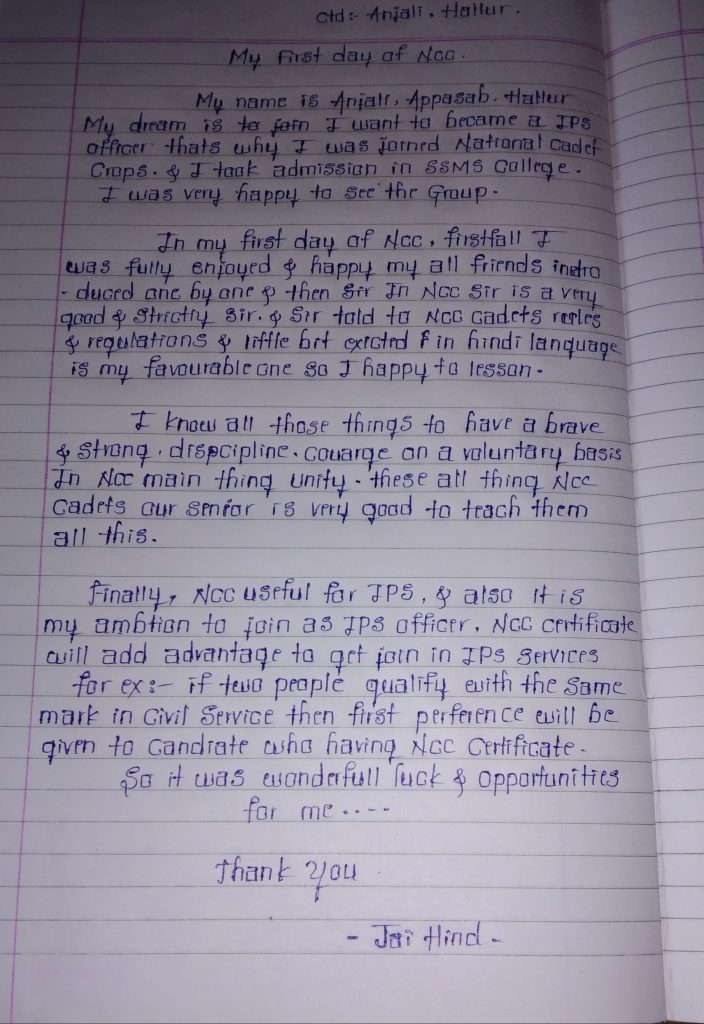 Ctd:- Anjali. Hallur.
My first day of Ncc.
My name is Anjali. Appasab. Hallur
My dream is to join I want to became a IPS
officer thats why I was joined National Cadet
Crops. & I took admission in SSMS College.
I was very happy to see the Group.
In my first day of Ncc, firstfall I
was fully enjoyed & happy my all friends intro
-duced one by one & then sir In Ncc Sir is a very
good & Strictly Sir. & Sir told to Ncc Cadets rules
& regulations & little bit in hindi language
is my favourable one so I happy to lesson.
I know all those things to have a brave
& Strong. dispcipline. couarge on a voluntary basis
In Ncc main thing unity. these all thing Ncc
Cadets our senior is very good to teach them
all this.
Finally, Ncc useful for IPS, & also it is
my ambtion to join as IPS officer. Ncc certificate
will add advantage to get join in IPS services
for ex:- if two people qualify with the same
mark in Civil Service then first perference will be
given to Candiate who having Ncc Certificate.
So it was wonderfull luck & opportunities
for me .....
Thank You
- Jai Hind -